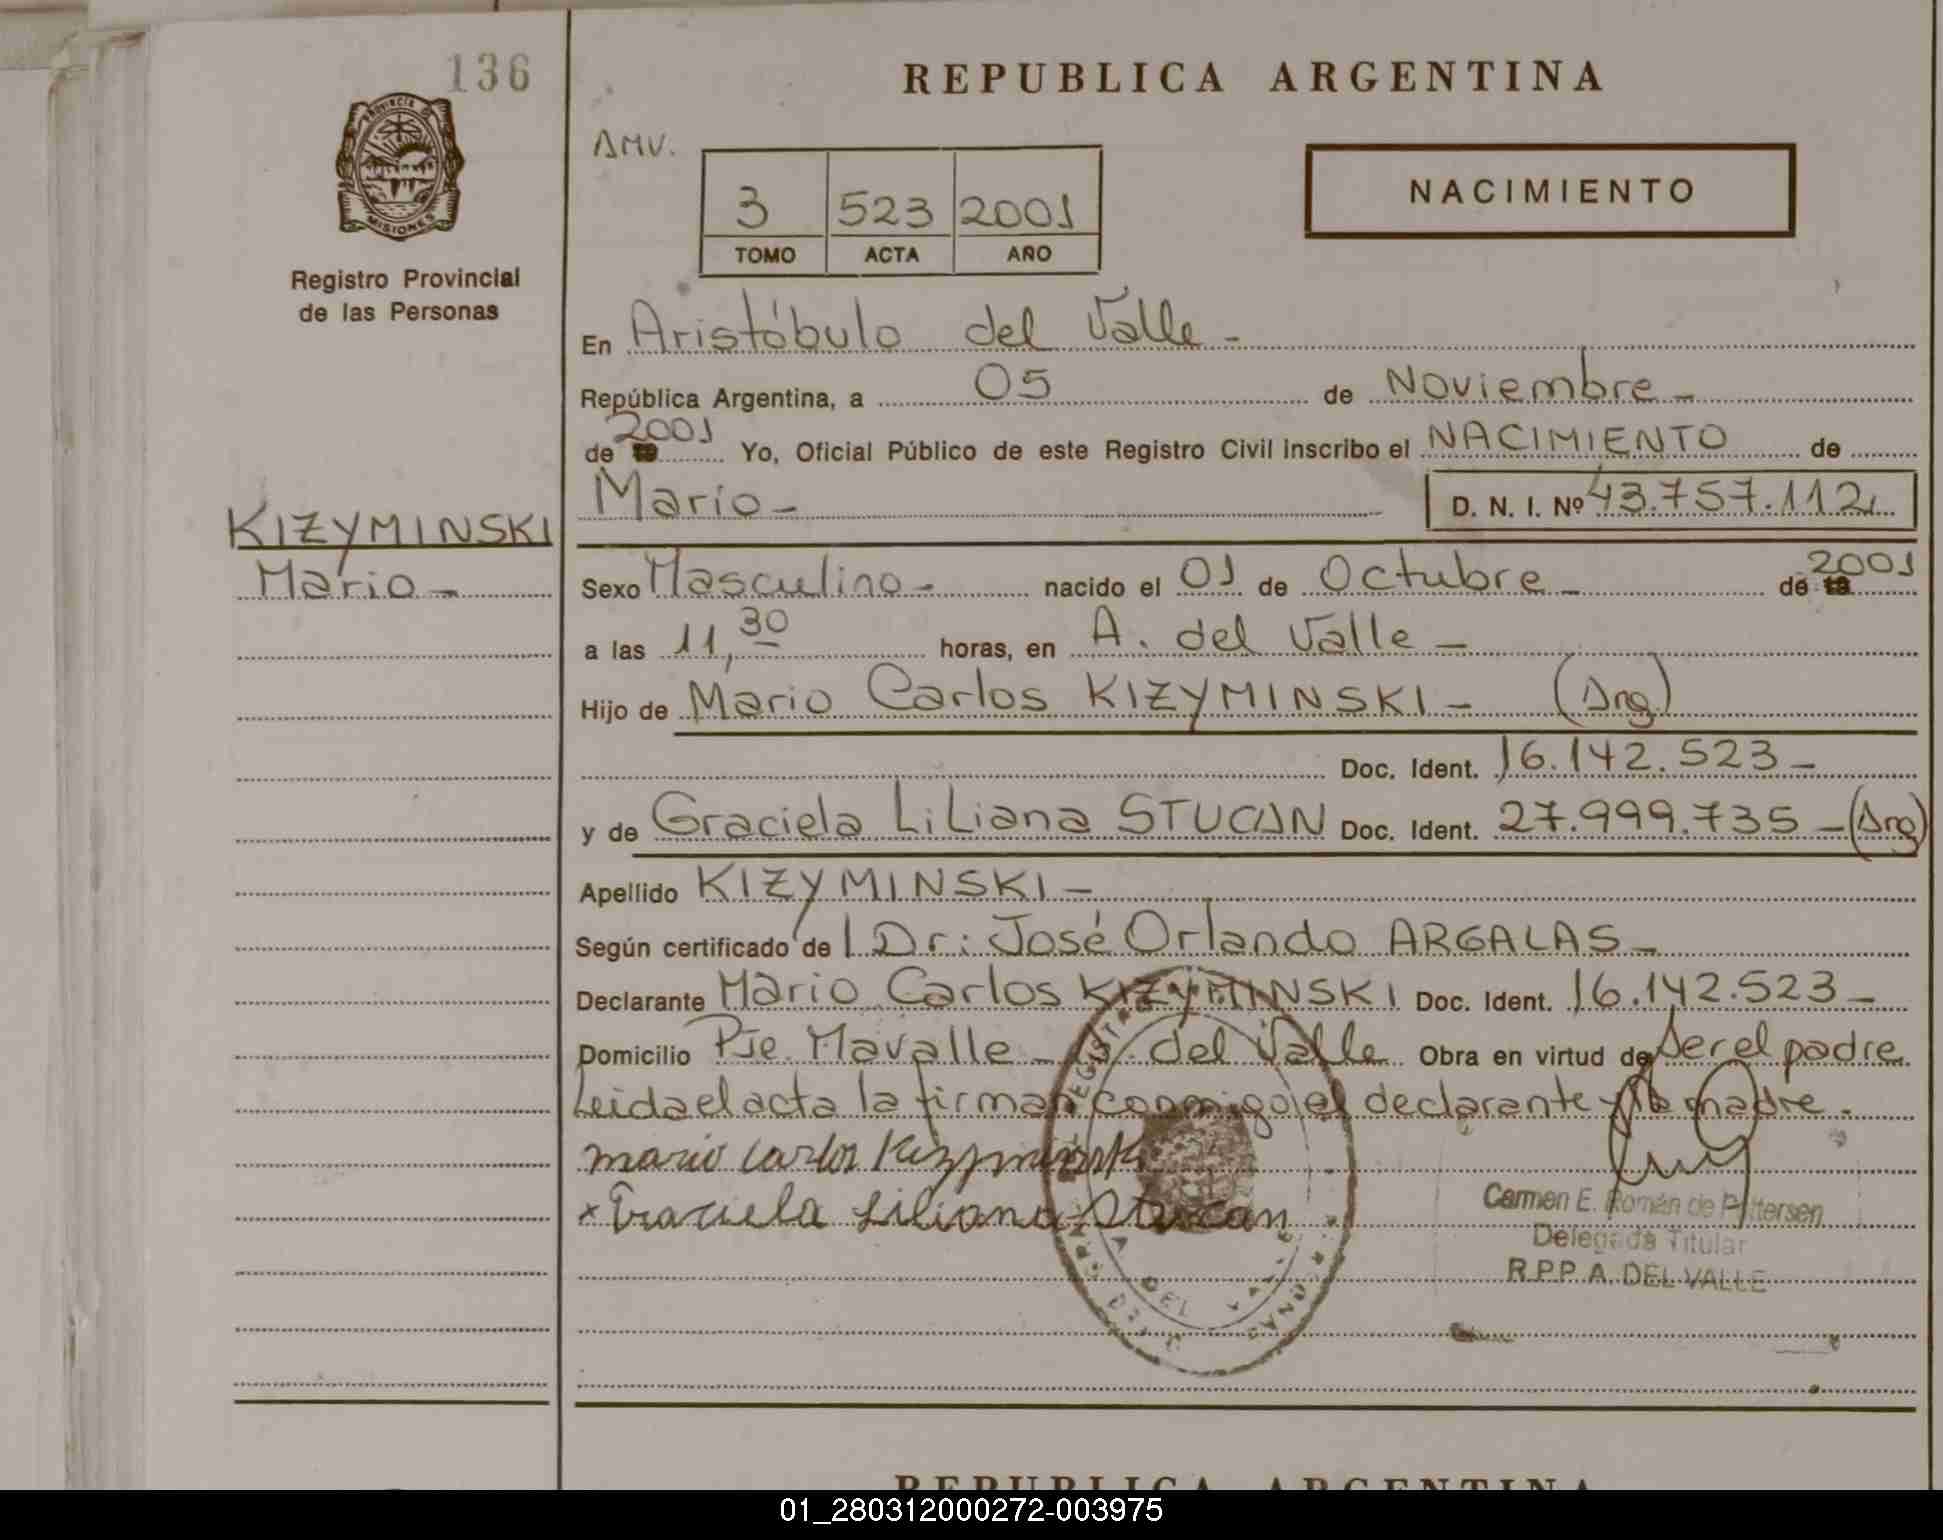 136
REPUBLICA ARGENTINA
AMV.
3 523 2001
TOMO ACTA AÑO
NACIMIENTO
PROVINCIA D
MISIONES
Registro Provincial
de las Personas
En Aristóbulo del Valle -
República Argentina, a 05 de Noviembre -
de 2001 Yo, Oficial Público de este Registro Civil inscribo el NACIMIENTO de
Mario - D. N. I. Nº 43.757.112
KIZYMINSKI
Mario -
Sexo Masculino - nacido el 01 de Octubre - de 2001
a las 11,30 horas, en A. del Valle -
Hijo de Mario Carlos KIZYMINSKI - (Arg)
Doc. Ident. 16.142.523 -
y de Graciela Liliana STUCAN Doc. Ident. 27.999.735 - (Arg)
Apellido KIZYMINSKI -
Según certificado de Dr: José Orlando ARGALAS -
Declarante Mario Carlos KIZYMINSKI Doc. Ident. 16.142.523 -
Domicilio Pje. Mavalle - A. del Valle Obra en virtud de ser el padre.
Leida el acta la firman conmigo el declarante y la madre.
Mario Carlos Kizyminski
x Graciela Liliana Stucan
Carmen E. Román de Pettersen
Delegada Titular
R.P.P. A. DEL VALLE
REPUBLICA ARGENTINA
01_280312000272-003975